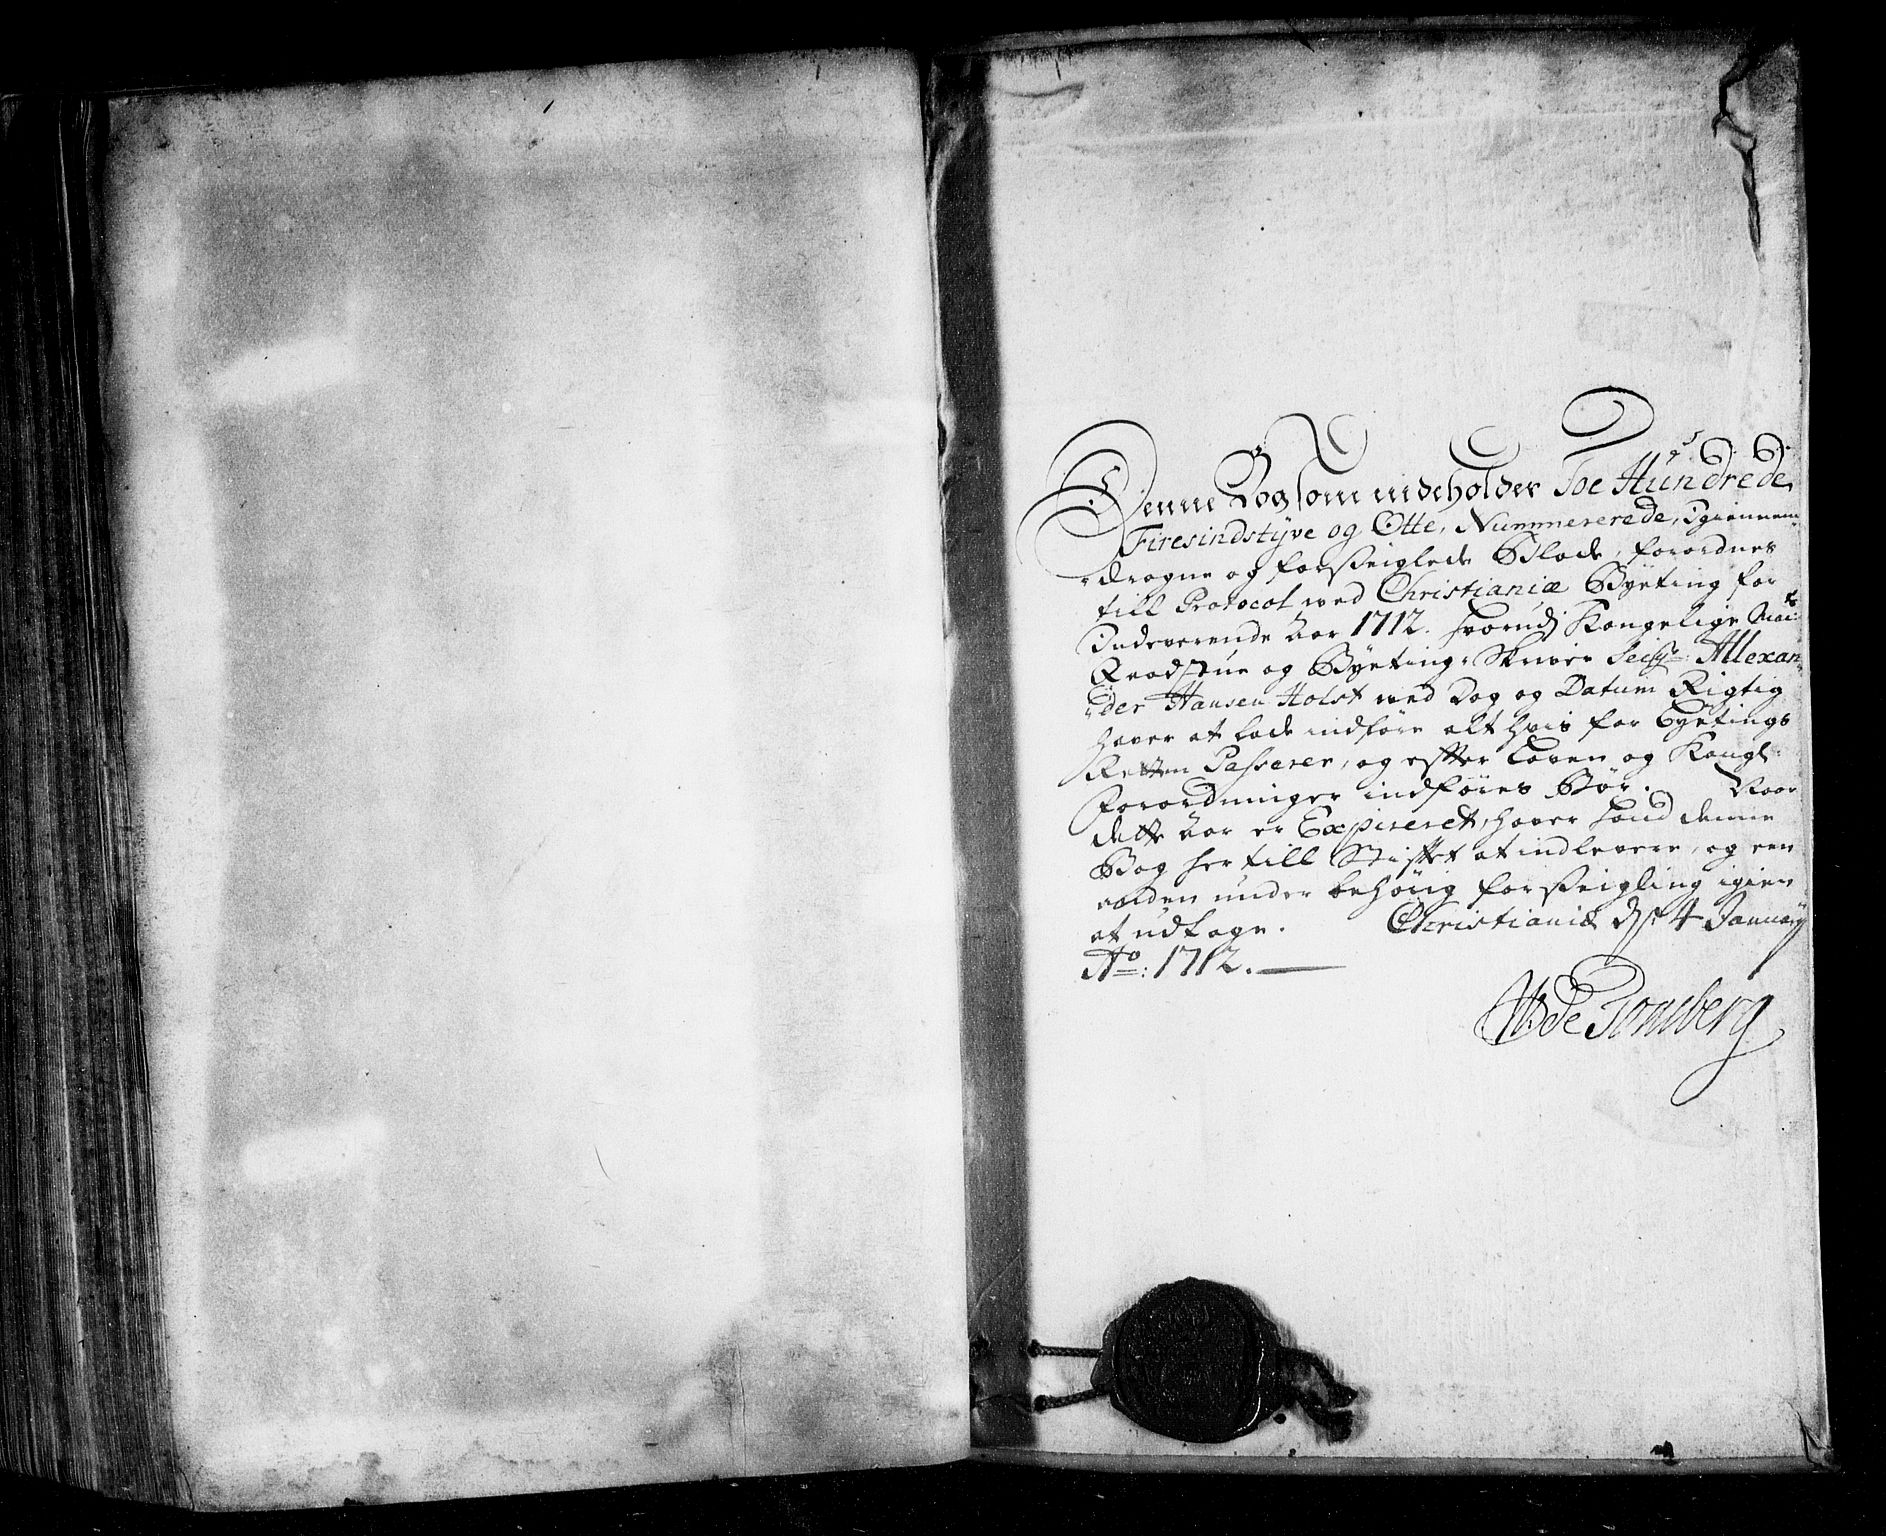 Denne Bog som indeholder Toe Hundrede
Firesindstÿve og Otte, Nummererede, igiennem
dragne og forseiglede Blade, forordnes
till Protocol ved Christianiæ Byeting for
Indeverende Aar 1712. hvorudj Kongelige Mai:ts
Raadstue og Byeting-Skriver Seigr: Allexan
der Hansen Holst ved Dag og Datum Rigtig
haver at lade indføre alt hvis for Byetings
Retten Passerer, og effter Loven og Kongl:
Forordninger indføres Bør. Naar
dette Aar er Expireret, haver hand denne
Bog her till Stifftet at indlevere, og een
anden under behørig forseigling igien
at udtage. Christianiæ dn 4 January
Ao: 1712.
WDe Tonsberg